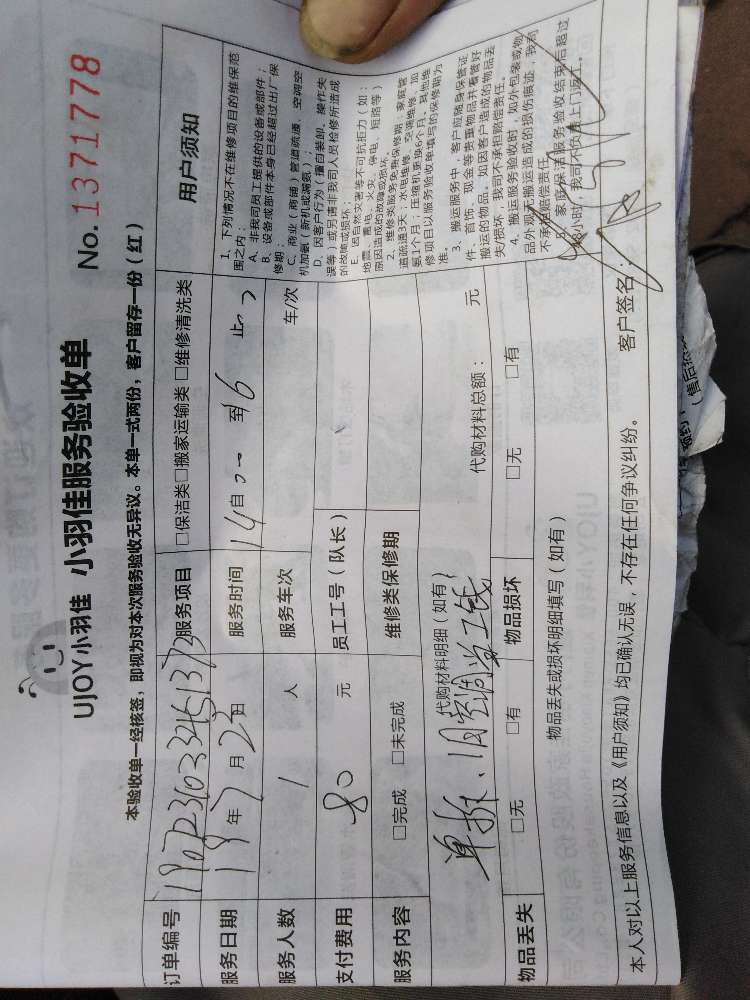 UJOY小羽佳 小羽佳服务验收单 No. 1371778
本验收单一经核签，即视为对本次服务验收无异议。本单一式两份，客户留存一份（红）
订单编号 服务项目 □保洁类□搬家运输类 □维修清洗类
服务日期 19年7月23日 服务时间 14自 至16 止
服务人数 1 人 服务车次 车/次
支付费用 80 元 员工工号（队长）
服务内容 □完成 □未完成 维修类保修期
代购材料明细（如有） 代购材料总额： 元
单拆、1月空调当工钱
物品丢失 □无 □有 物品损坏 □无 □有
物品丢失或损坏明细填写（如有）
用户须知
1、下列情况不在维修项目的维保范
围之内：
A、非我司员工提供的设备或部件；
B、设备或部件本身已经超过出厂保
修期；
C、商业（商铺）管道疏通、空调空
机加氨（新机或漏氨）；
D、因客户行为（擅自装卸、操作失
误等）或另请非我司人员检修所造成
的故障或损坏；
E、因自然灾害等不可抗拒力（如：
地震、雷电、火灾、停电、短路等）
原因造成的故障或损坏。
2、维修类服务免费保修期：家庭管
道疏通3天；水电维修、空调维修、加
氨1个月；压缩机更换6个月；其他维
修项目以服务验收单填写的保修期为
准。
3、搬运服务中，客户应随身保管证
件、首饰、现金等贵重物品并看管好
搬运的物品。如因客户造成的物品丢
失/损坏，我司不承担赔偿责任。
4、搬运服务验收时，如外包装或物
品外观无搬运造成的损伤痕迹，我司
不承担赔偿责任
5、家庭保洁服务验收结束后超过
小时，我司不负责上门返工。
本人对以上服务信息以及《用户须知》均已确认无误，不存在任何争议纠纷。 客户签名：
（售后